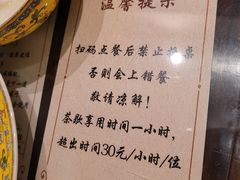 温馨提示
扫码点餐后禁止换桌
否则会上错餐
敬请谅解！
茶歇享用时间一小时，
超出时间30元/小时/位